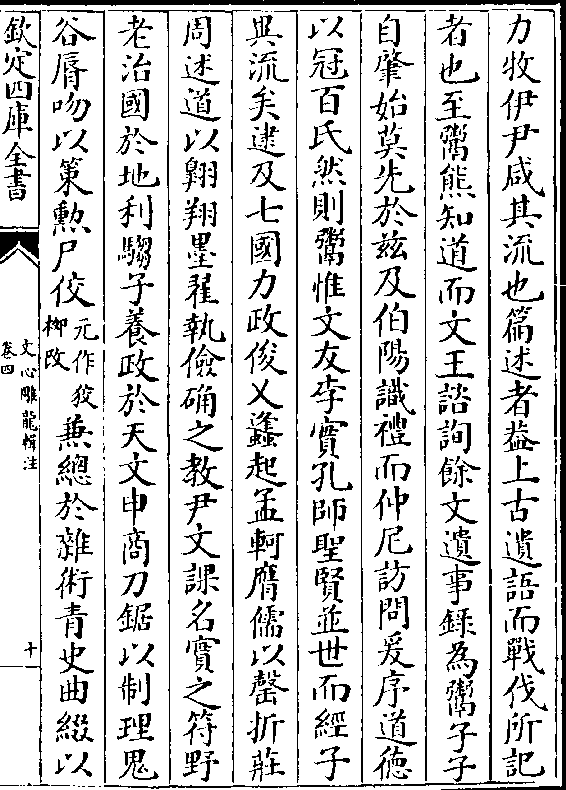 力牧伊尹咸其流也篇述者葢上古遺語而戰伐所記
者也至鬻熊知道而文王諮詢餘文遺事錄為鬻子子
自肇始莫先於兹及伯陽識禮而仲尼訪問爰序道德
以冠百氏然則鬻惟文友李實孔師聖賢並世而經子
異流矣逮及七國力政俊乂蠭起孟軻膺儒以罄折莊
周述道以翱翔墨翟執儉确之教尹文課名實之符野
老治國於地利騶子養政於天文申商刀鋸以制理鬼
谷脣吻以策勲尸佼元作狡柳改兼總於雜術青史曲綴以
欽定四庫全書
文心雕龍輯注
卷四
十